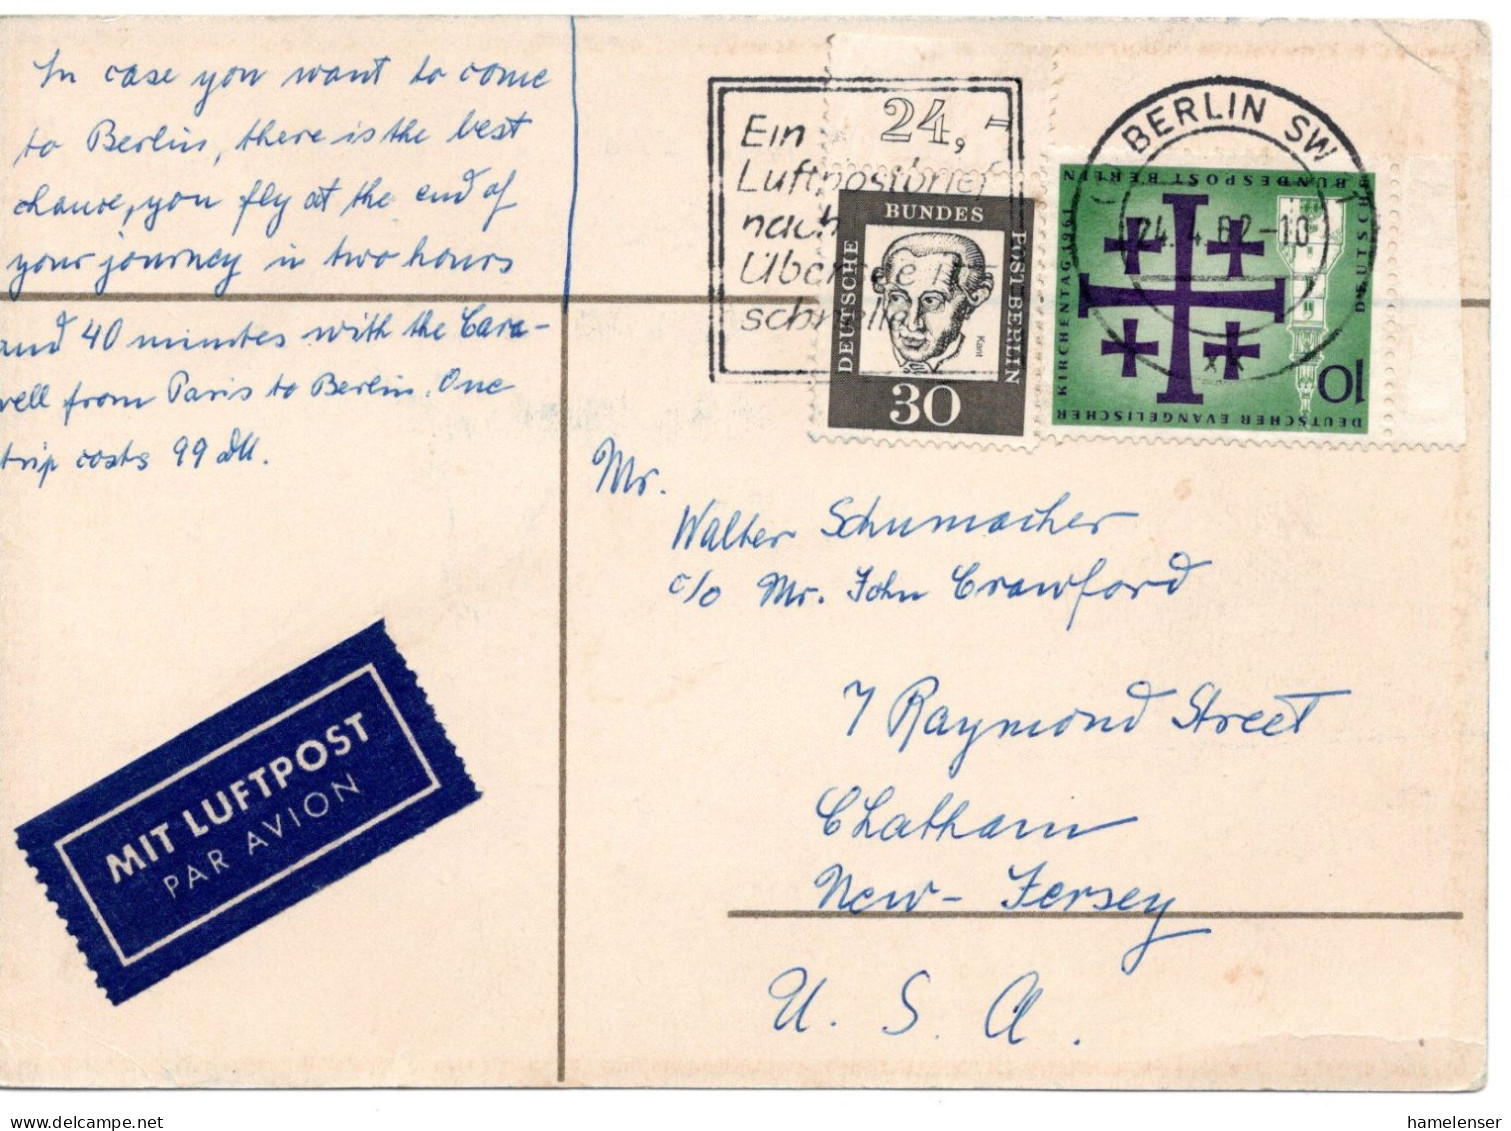 In case you want to come
to Berlin, there is the best
chance, you fly at the end of
your journey in two hours
and 40 minutes with the Cara-
vell from Paris to Berlin. One
trip costs 99 DM.
MIT LUFTPOST
PAR AVION
24,=
Ein
Luftpostbrief
nach
Übersee ist
schneller
BUNDES
DEUTSCHE
POST BERLIN
Kant
30
BERLIN SW
24.4.62-10
DEUTSCHE
BUNDESPOST BERLIN
KIRCHENTAG 1961
DEUTSCHER EVANGELISCHER
10
Mr.
Walter Schumacher
c/o Mr. John Crawford
7 Raymond Street
Chatham
New-Jersey
U. S. A.
hamelenser